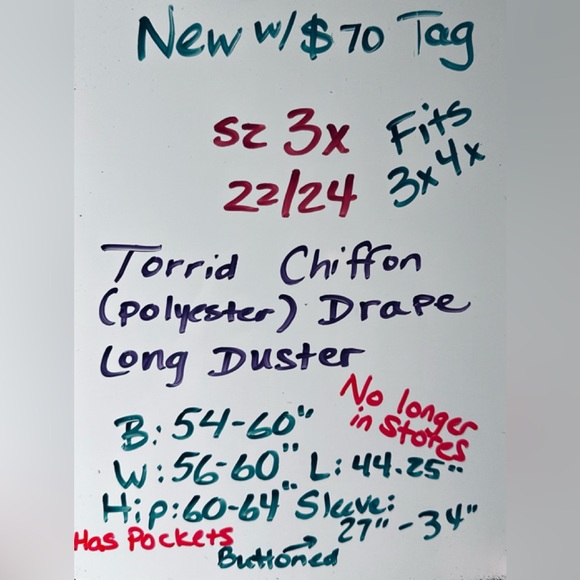 New w/ $70 Tag
sz 3x Fits
22/24 3x 4x
Torrid Chiffon
(polyester) Drape
Long Duster
No longer
in stores
B: 54-60"
W: 56-60" L: 44.25"
Hip: 60-64" Sleeve:
27" - 34"
Has Pockets
Buttoned →